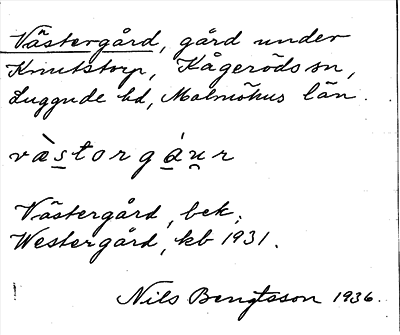 Västergård, gård under
Knutstorp, Kågeröds sn,
Luggude hd, Malmöhus län.
vàs̲torgá̲u̯r
Västergård, bek.
Westergård, kb 1931.
Nils Bengtsson 1936.